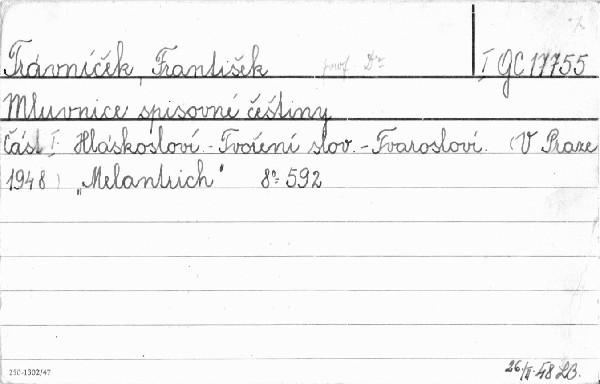 Trávníček, František prof. Dr I GC 17755
Mluvnice spisovné češtiny
Část I. Hláskosloví - Tvoření slov. - Tvarosloví. (V Praze
1948) „Melantrich" 8º 592
25C-1302/47 26/II 48 LB.